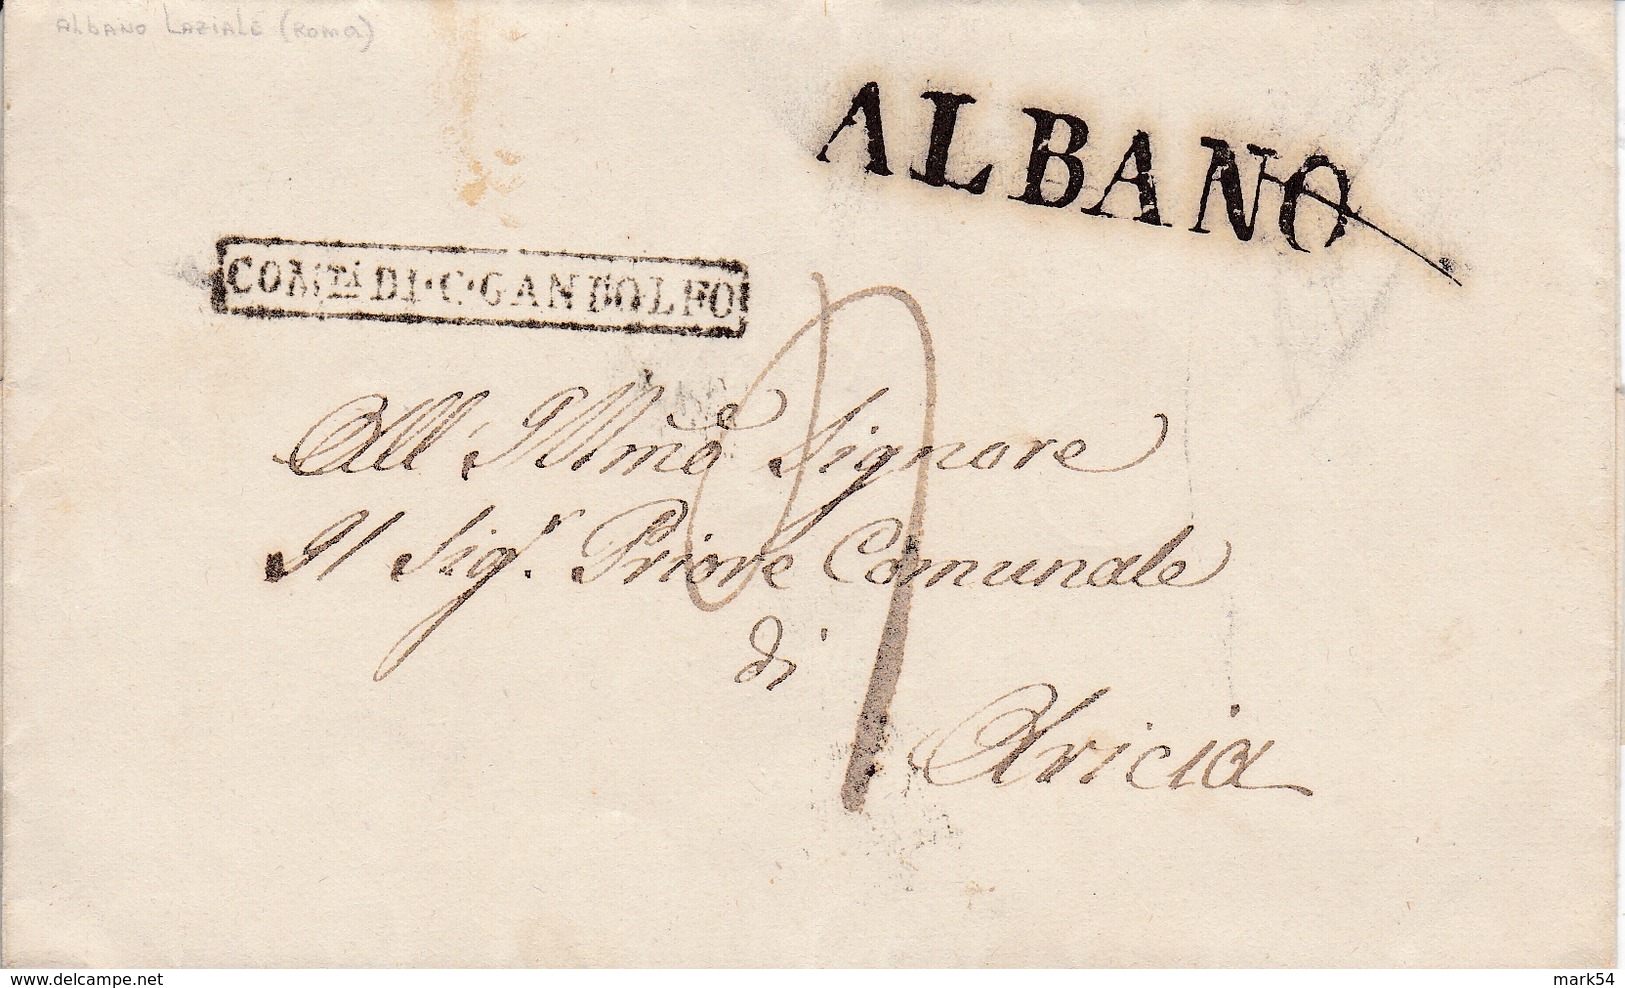 ALBANO LAZIALE (ROMA)
ALBANO
COMTà DI·C·GANDOLFO
All' Illmo Signore
Il Sigr. Priore Comunale
di
Aricia
www.delcampe.net
mark54